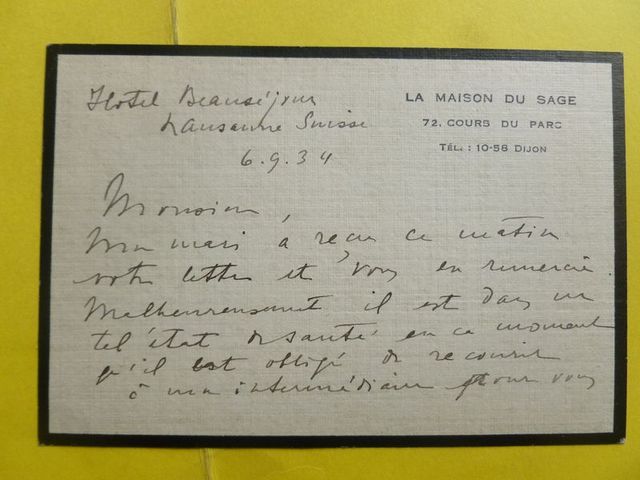 LA MAISON DU SAGE
72, COURS DU PARC
TÉL. : 10-58 DIJON
Hotel Beauséjour
Lausanne Suisse
6.9.34
Monsieur,
Mon mari a reçu ce matin
votre lettre et vous en remercie.
Malheureusement il est dans un
tel état de santé en ce moment
qu'il est obligé de recourir
à mon intermédiaire pour vous